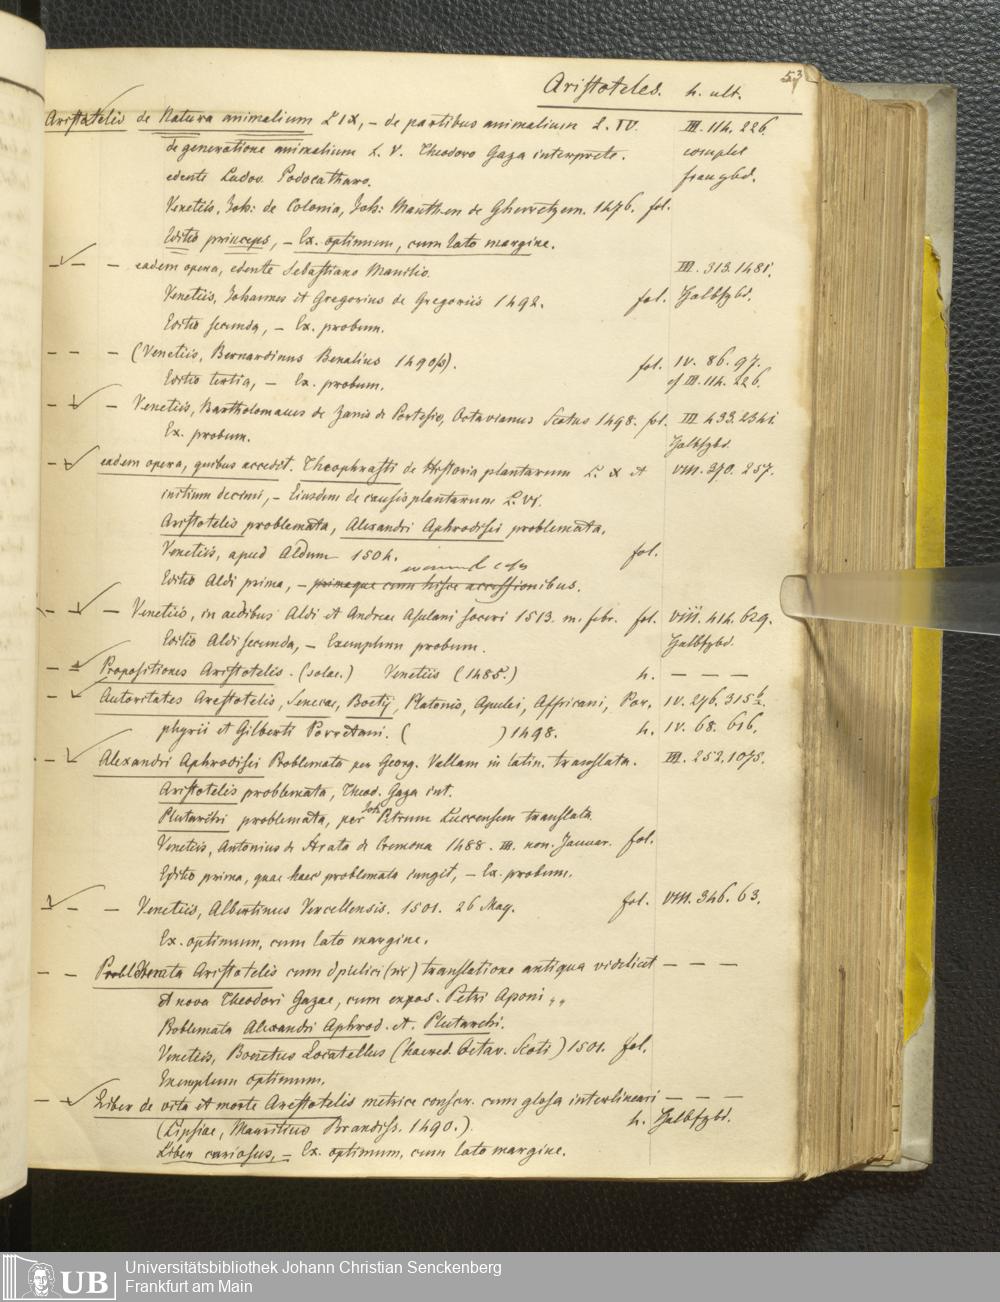 Aristoteles. h. ult. 53
Aristotelis de Natura animalium L IX, – de partibus animalium L. IV. III. 114. 226.
de generatione animalium L. V. Theodoro Gaza interprete. complet
edente Ludov. Podocatharo. franzbd.
Venetiis, Joh: de Colonia, Joh: Manthen de Gherretzem. 1476. fol.
Editio princeps, – Ex. optimum, cum lato margine.
– – – eadem opera, edente Sebastiano Manilio. III. 313. 1481.
Venetiis, Johannes et Gregorius de Gregoriis 1492. fol. Halbfzbd.
Editio secunda, – Ex. probum.
– – – (Venetiis, Bernardinus Benalius 1490). fol. IV. 86. 97.
Editio tertia, – Ex. probum. cf III. 114. 226.
– – – Venetiis, Bartholomaeus de Zanis de Portesio, Octavianus Scotus 1498. fol. III 433. 2341.
Ex. probum. Halbfzbd.
– – eadem opera, quibus accedit. Theophrasti de Historia plantarum L. X et VIII. 370. 257.
initium decimi, – Eiusdem de causis plantarum L. VI.
Aristotelis problemata, Alexandri Aphrodisei problemata.
Venetiis, apud Aldum 1504. fol.
Editio Aldi prima, – primaque cum hisce accessionibus.
– – – Venetiis, in aedibus Aldi et Andreae Asulani soceri 1513. m. febr. fol. VIII. 414. 629.
Editio Aldi secunda, – Exemplum probum. Halbfzbd.
– – Propositiones Aristotelis. (solae.) Venetiis (1485.) h. – – –
– – Autoritates Arestotelis, Senecae, Boetij, Platonis, Apulei, Affricani, Por. IV. 276. 315
phyrii et Gilberti Porretani. ( ) 1498. h. IV. 68. 616.
– – Alexandri Aphrodisei Problemata per Georg. Vallam in latin. translata. III. 252. 1075.
Aristotelis problemata, Theod. Gaza int.
Plutarchi problemata, per Joh. Petrum Luccensem translata
Venetiis, Antonius de Strata de Cremona 1488. III. non. Januar. fol.
Editio prima, quae haec problemata iungit, – Ex. probum.
– – – Venetiis, Albertinus Vercellensis. 1501. 26 May. fol. VIII. 346. 63.
Ex. optimum, cum lato margine.
– – Problemata Aristotelis cum dpulici (sic) translatione antiqua videlicit – – –
et nova Theodori Gazae, cum expos. Petri Aponi „
Problemata Alexandri Aphrod. et. Plutarchi.
Venetiis, Bonetus Locatellus (haered. Octav. Scoti) 1501. fol.
Exemplum optimum.
– – Liber de vita et morte Arestotelis metrice conscr. cum glosa interlineari – – –
(Lipsiae, Mauritius Brandiss. 1490.). h. Halbfzbd.
Liber curiosus, – Ex. optimum, cum lato margine.
UB Universitätsbibliothek Johann Christian Senckenberg
Frankfurt am Main